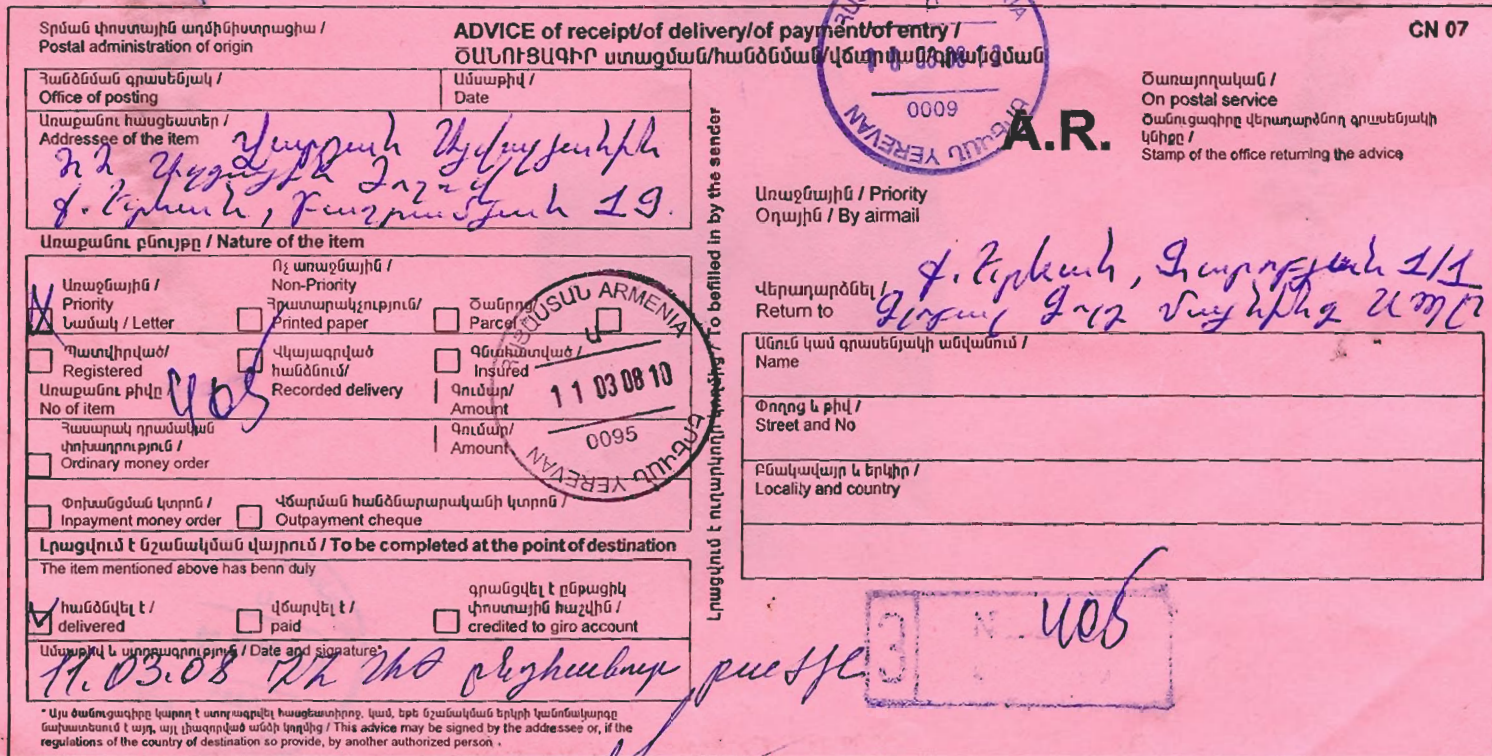 Տրման փոստային ադմինիստրացիա /
Postal administration of origin
ADVICE of receipt/of delivery/of payment/of entry /
ԾԱՆՈՒՑԱԳԻՐ ստացման/հանձնման/վճարման/գրանցման
CN 07
Հանձնման գրասենյակ /
Office of posting
Ամսաթիվ /
Date
Առաքանու հասցեատեր /
Addressee of the item
ՀՀ
ք. Երևան, Բաղրամյան 19.
Առաքանու բնույթը / Nature of the item
Առաջնային /
Priority
Նամակ / Letter
Ոչ առաջնային /
Non-Priority
Հրատարակչություն/
Printed paper
Ծանրոց
Parcel
Պատվիրված/
Registered
Վկայագրված
հանձնում/
Recorded delivery
Գնահատված /
Insured
Առաքանու թիվը
No of item
Գումար/
Amount
Հասարակ դրամական
փոխադրություն /
Ordinary money order
Գումար/
Amount
Փոխանցման կտրոն /
Inpayment money order
Վճարման հանձնարարականի կտրոն /
Outpayment cheque
ՀԱՅԱՍՏԱՆ ARMENIA
11 03 08 10
0095
ԵՐԵՎԱՆ YEREVAN
Լրացվում է նշանակման վայրում / To be completed at the point of destination
The item mentioned above has benn duly
հանձնվել է /
delivered
վճարվել է /
paid
գրանցվել է ընթացիկ
փոստային հաշվին /
credited to giro account
Ամսաթիվ և ստորագրություն / Date and signature*
11.03.08
* Այս ծանուցագիրը կարող է ստորագրվել հասցեատիրոջ, կամ, եթե նշանակման երկրի կանոնակարգը
նախատեսում է այդ, այլ լիազորված անձի կողմից / This advice may be signed by the addressee or, if the
regulations of the country of destination so provide, by another authorized person .
Լրացվում է ուղարկողի կողմից / To befilled in by the sender
0009
ԵՐԵՎԱՆ YEREVAN
A.R.
Ծառայողական /
On postal service
Ծանուցագիրը վերադարձնող գրասենյակի
կնիքը /
Stamp of the office returning the advice
Առաջնային / Priority
Օդային / By airmail
Վերադարձնել /
Return to
ք. Երևան, 1/1
Գլոբալ Գոլդ Մայնինգ ՍՊԸ
Անուն կամ գրասենյակի անվանում /
Name
Փողոց և թիվ /
Street and No
Բնակավայր և երկիր /
Locality and country
3